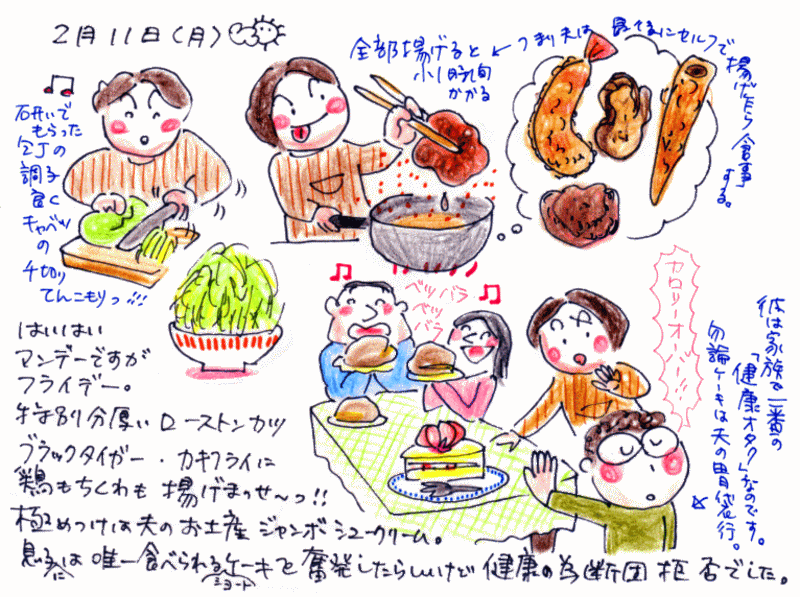 2月11日(月)
研いで
もらった
包丁の
調子
良く
キャベツ
の
千切り
てんこもりっ!!!
全部揚げると
小1時間
かかる
←つまり夫は
最後にセルフで
揚げたら食事
する。
ベツバラ
ベツ
バラ
カロリーオーバー!!!
彼は家族で一番の
「健康オタク」なのです。
勿論ケーキは夫の胃袋行。
はいはい
マンデーですが
フライデー。
特別分厚いローストンカツ
ブラックタイガー・カキフライに
鶏もちくわも揚げまっせ〜っ!!
極めつけは夫のお土産ジャンボシュークリーム。
息子には唯一食べられるショートケーキを奮発したらしいけど健康の為断固拒否でした。